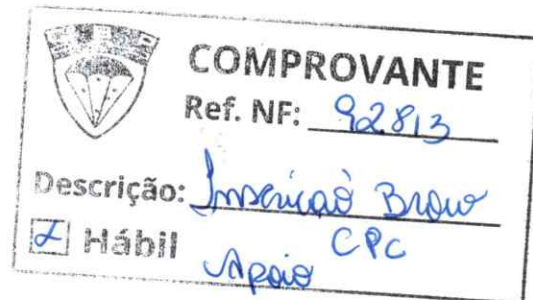 COMPROVANTE
Ref. NF: 92813
Descrição: Inscrição Brow
CPC
Hábil
Apoio